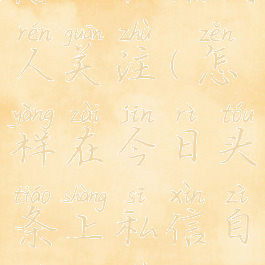 rén guān zhù zěn
人关注(怎
yàng zài jīn rì tóu
样在今日头
tiáo shàng sī xìn zì
条上私信自